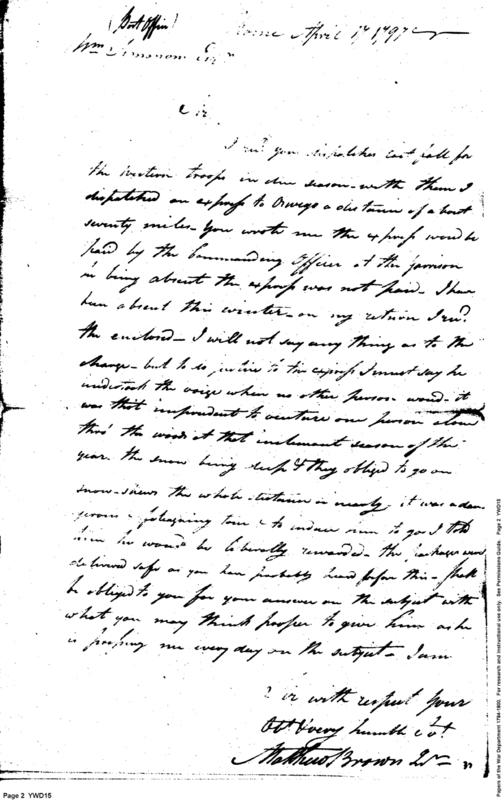 (Post Office)
Rome April 17 1797
Wm Simmons Esqr
Sir
I recd your dispatches last fall for
the western troops in due season with them I
dispatched an express to Oswego a distance of about
seventy miles - You wrote me the express would be
paid by the Commanding Officer at the garrison
he being absent the express was not paid - I have
been absent this winter - on my return I recd
the enclosed - I will not say any thing as to the
charge - but to do justice to the express I must say he
undertook the voige when no other person would - it
was that imprudent to venture one person alone
thro' the woods at that inclement season of the
year. the snow being deep & they obliged to go on
snow-shews the whole distance or nearly - it was a dan-
gerous & fatagueing tour & to induce him to go I told
him he would be liberally rewarded - the packages were
delivered safe as you have probably heard before this - shall
be obliged to you for your answer on the subject with
what you may think proper to give him as he
is pressing me every day on the subject - I am
Sir with respect your
Obt & very humble Svt
Matthew Brown Jr
Page 2 YWD15
Papers of the War Department 1784-1800. For research and instructional use only. See Permissions Guide. Page 2 YWD15